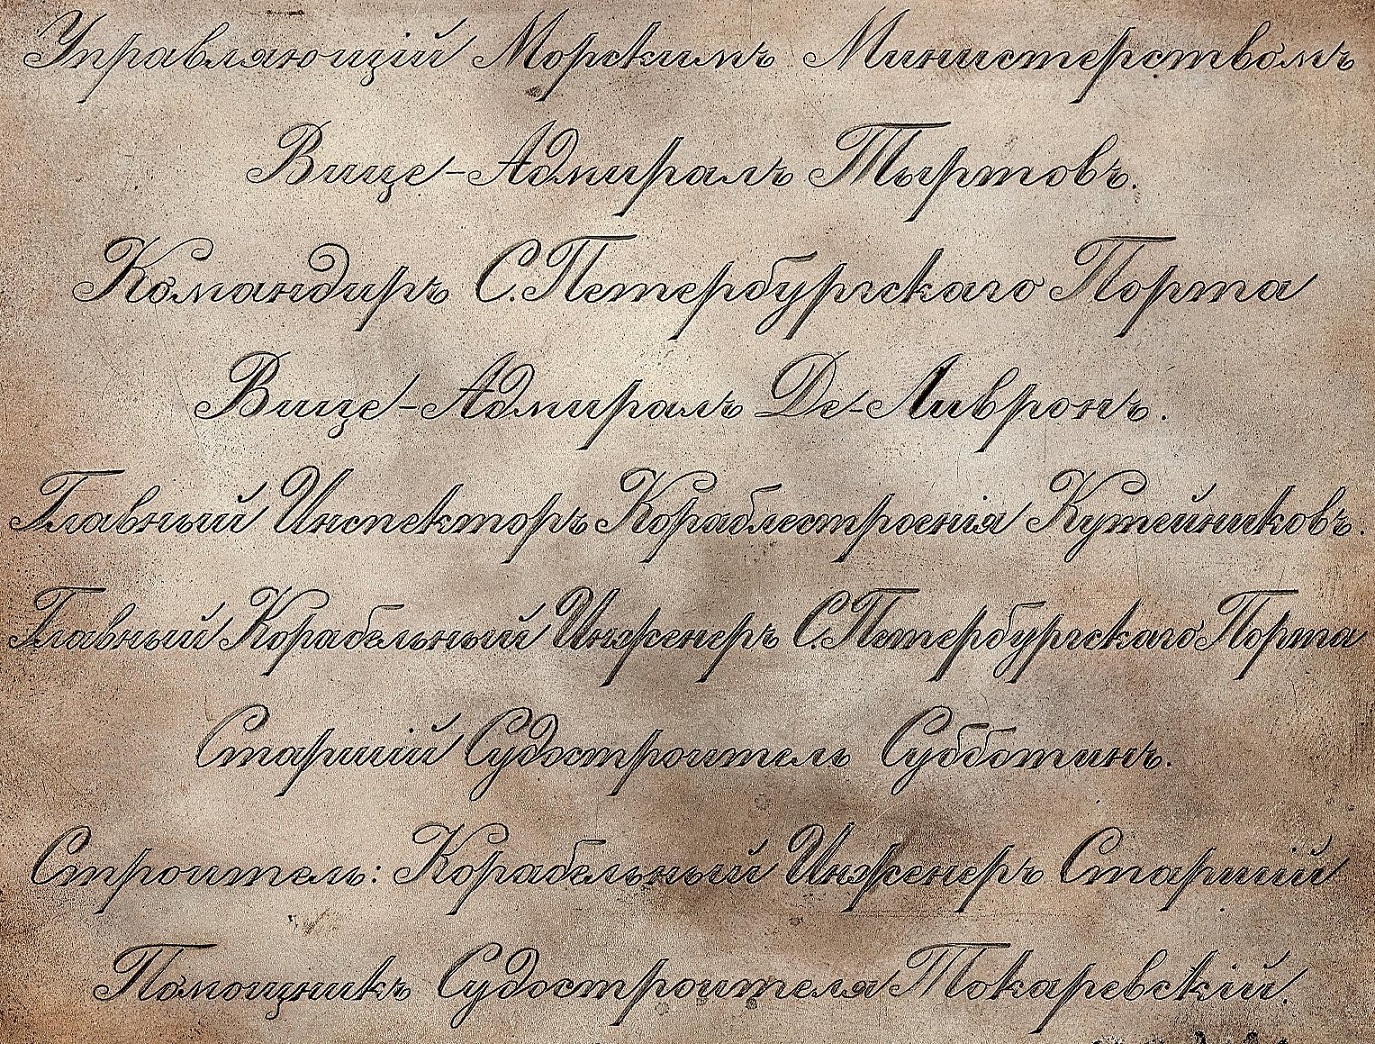 Управляющій Морскимъ Министерствомъ
Вице-Адмиралъ Тыртовъ.
Командиръ С.Петербургскаго Порта
Вице-Адмиралъ Де-Ливронъ.
Главный Инспекторъ Кораблестроенія Кутейниковъ.
Главный Корабельный Инженеръ С.Петербургскаго Порта
Старшій Судостроитель Субботинъ.
Строитель: Корабельный Инженеръ Старшій
Помощникъ Судостроителя Токаревскій.